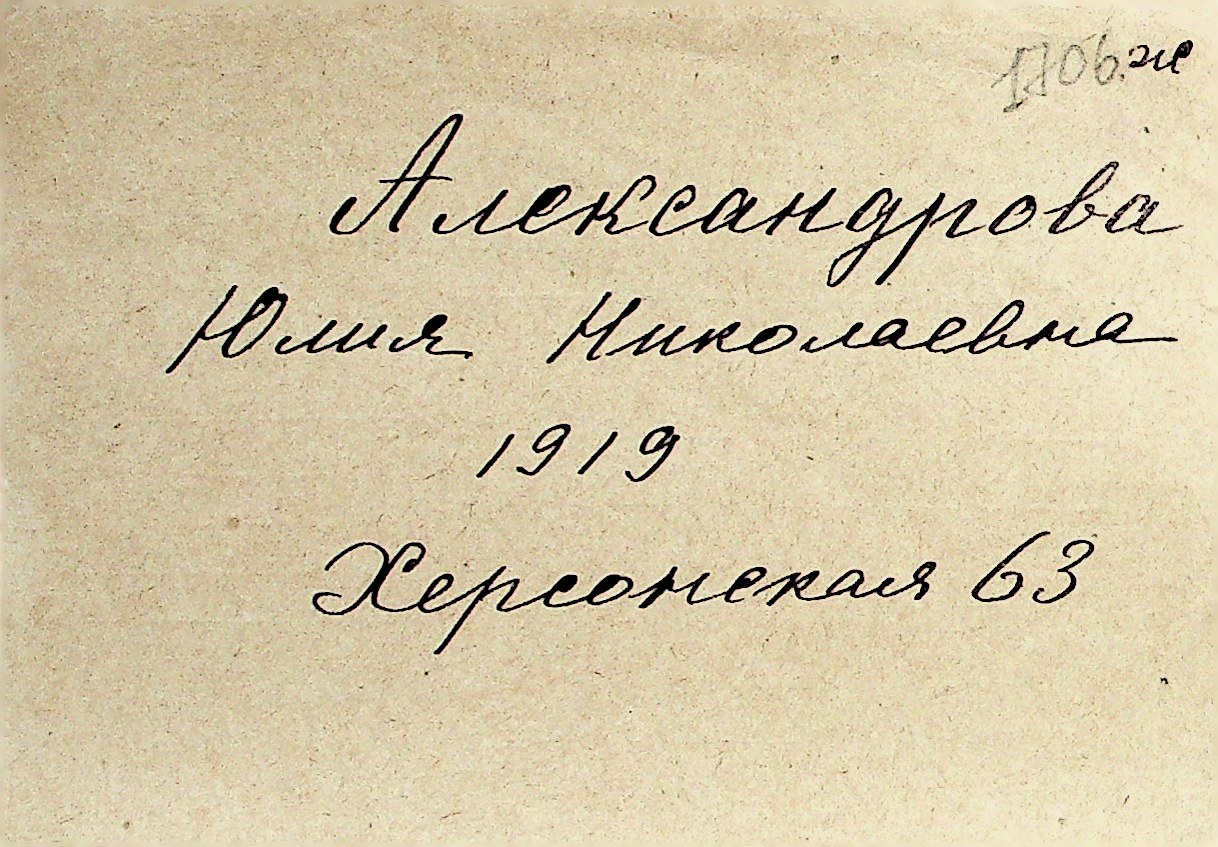 1706.ж
Александрова
Юлия Николаевна
1919
Херсонская 63